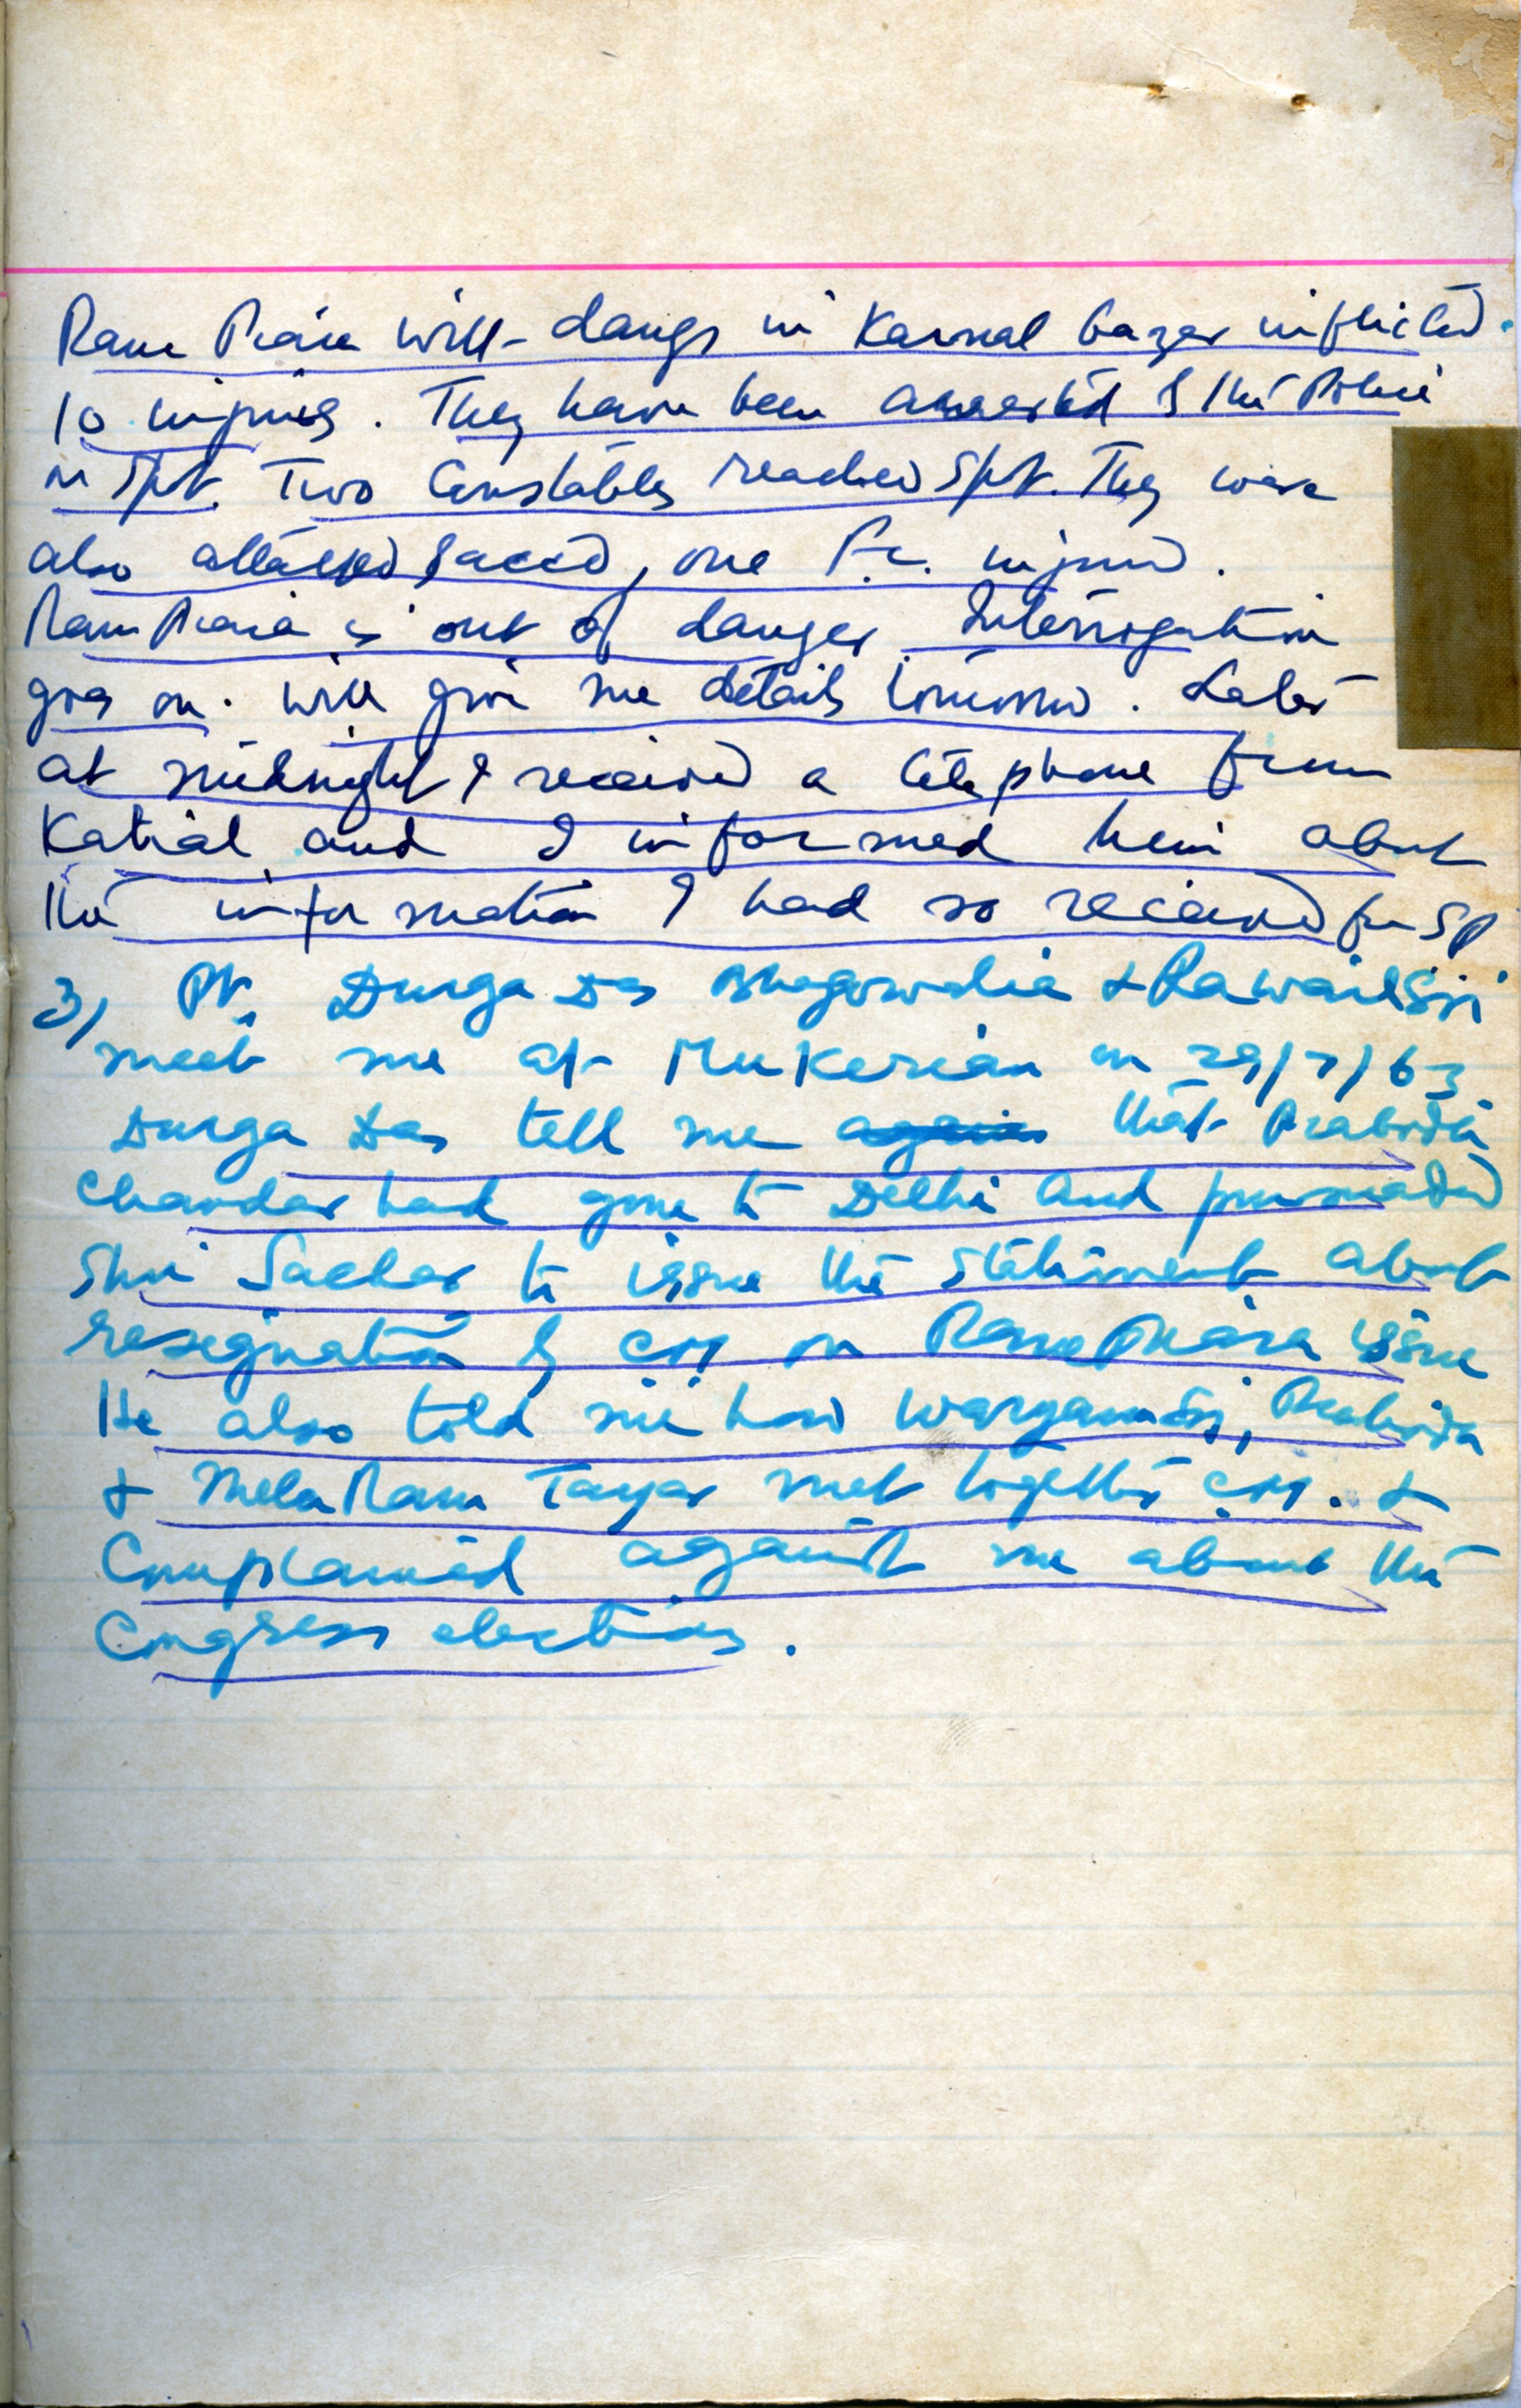 Ram Piara with dangs in Karnal bazar inflicted
10 injuries. They have been arrested by the Police
on spot. Two Constables reached spot. They were
also attacked, one F.C. injured.
Ram Piara is out of danger. Interrogation
goes on. will give me details tomorrow. Later
at midnight I received a telephone from
Katial and I informed him about
the information I had so received from SP
3) Pt. Durga Das Bhagowalia &
meet me at Mukerian on 29/7/63
Durga Das tell me that Prabodh
Chandar had gone to Delhi and pursuaded
Shri Sachar to issue the statement about
resignation of CM on Ram Piara issue
He also told me how Waryam Singh, Prabodh
& Mela Ram Tayar met together CM. &
Complained against me about the
Congress elections.